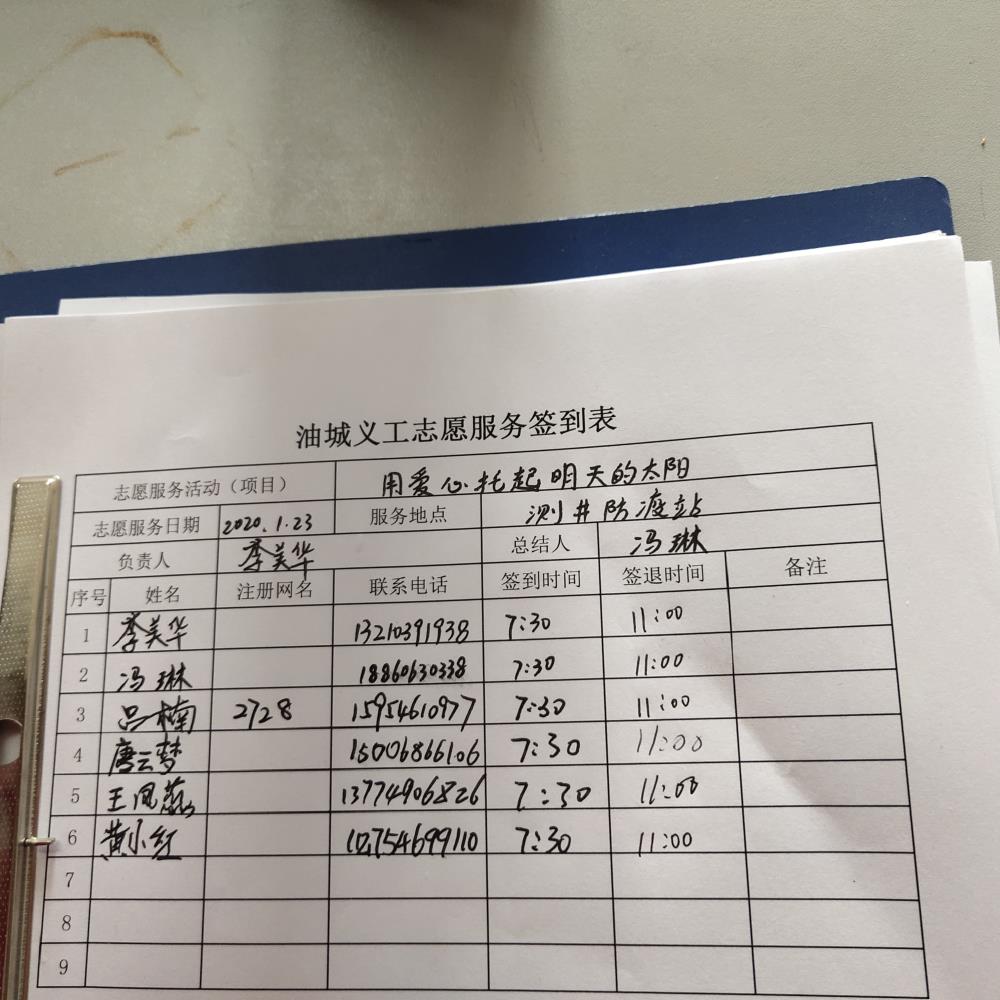 油城义工志愿服务签到表
志愿服务活动（项目） 用爱心托起明天的太阳
志愿服务日期 2020.1.23 服务地点 测井防渡站
负责人 李美华 总结人 冯琳
序号 姓名 注册网名 联系电话 签到时间 签退时间 备注
1 李美华 13210391938 7:30 11:00
2 冯琳 18860630338 7:30 11:00
3 吕楠 2728 15954610977 7:30 11:00
4 唐云梦 15006866106 7:30 11:00
5 王凤 13774906826 7:30 11:00
6 黄小红 7:30 11:00
7
8
9